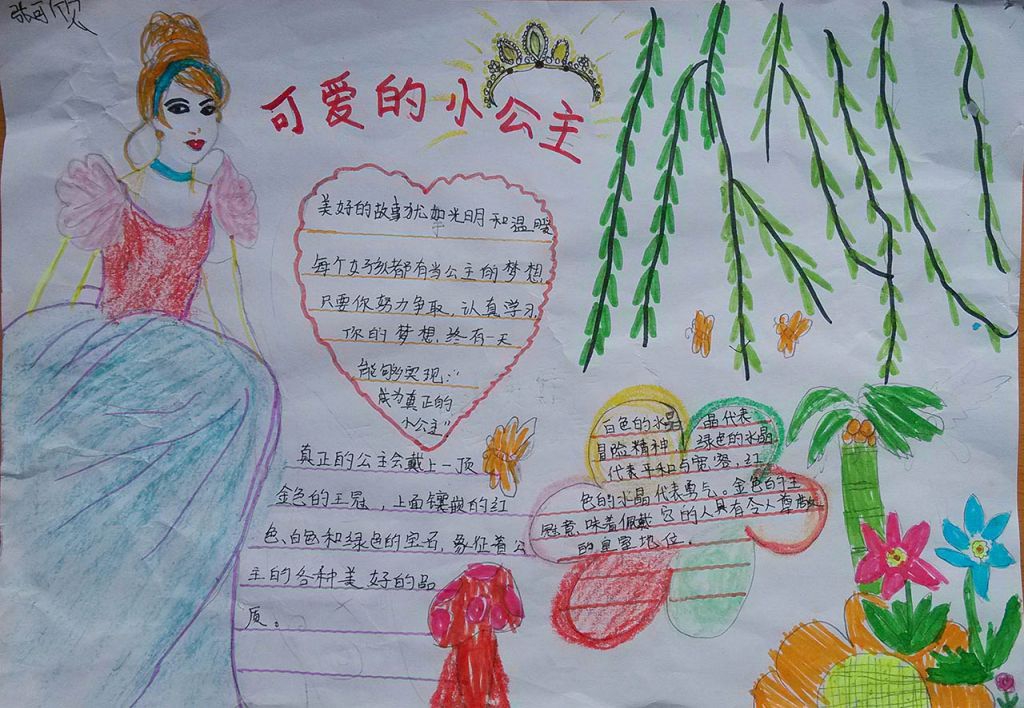 张可欣
可爱的小公主
美好的故事犹如光明和温暖
每个女孩都有当公主的梦想
只要你努力争取，认真学习
你的梦想，终有一天
能够实现："
成为真正的
小公主"
真正的公主会戴上一顶
金色的王冠，上面镶嵌的红
色、白色和绿色的宝石，象征着公
主的各种美好的品
质。
白色的水晶
晶代表
冒险精神
绿色的水晶
代表平和与宽容，红
色的水晶代表勇气。金色的王
冠意味着佩戴它的人具有令人尊敬
的皇室地位。